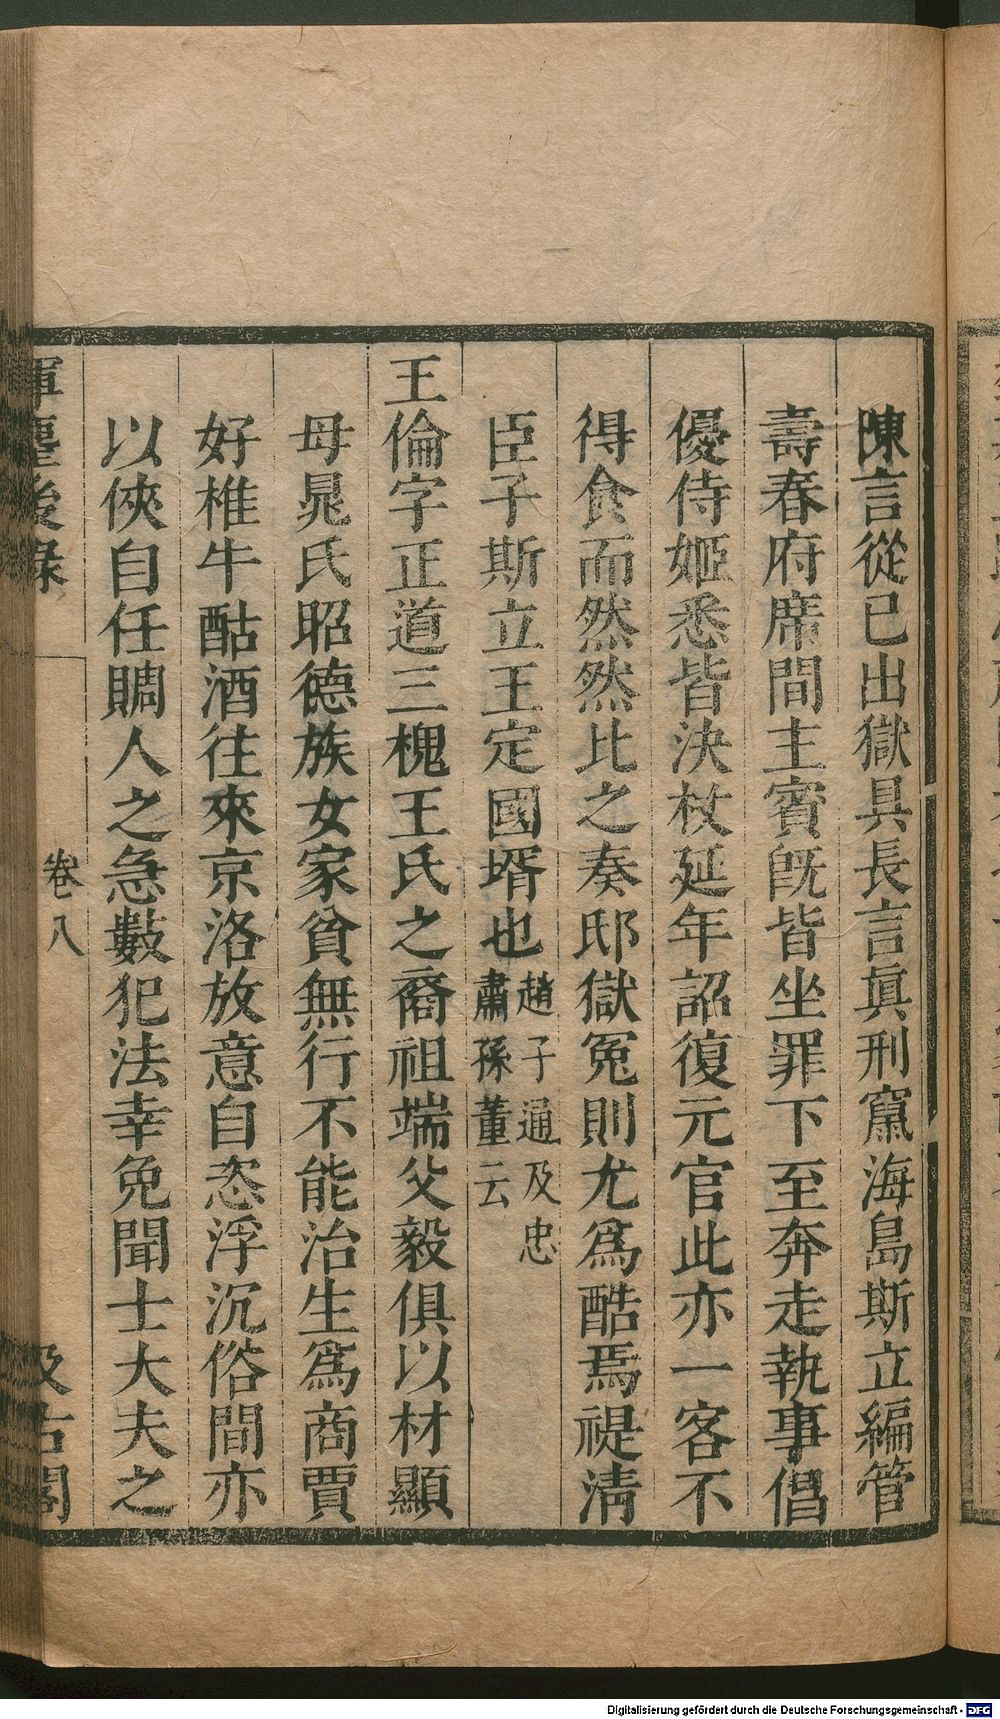 陳言從已出獄具長言眞刑竄海島斯立編管
壽春府席間主賓旣皆坐罪下至奔走執事倡
優侍姬悉皆決杖延年詔復元官此亦一客不
得食而然然比之奏邸獄冤則尤爲酷焉禔淸
臣子斯立王定國壻也趙子通及忠
肅孫董云
王倫字正道三槐王氏之裔祖端父毅俱以材顯
母晁氏昭德族女家貧無行不能治生爲商賈
好椎牛酤酒往來京洛放意自恣浮沉俗間亦
以俠自任賙人之急數犯法幸免聞士大夫之
揮麈後錄
卷八
汲古閣
Digitalisierung gefördert durch die Deutsche Forschungsgemeinschaft - DFG